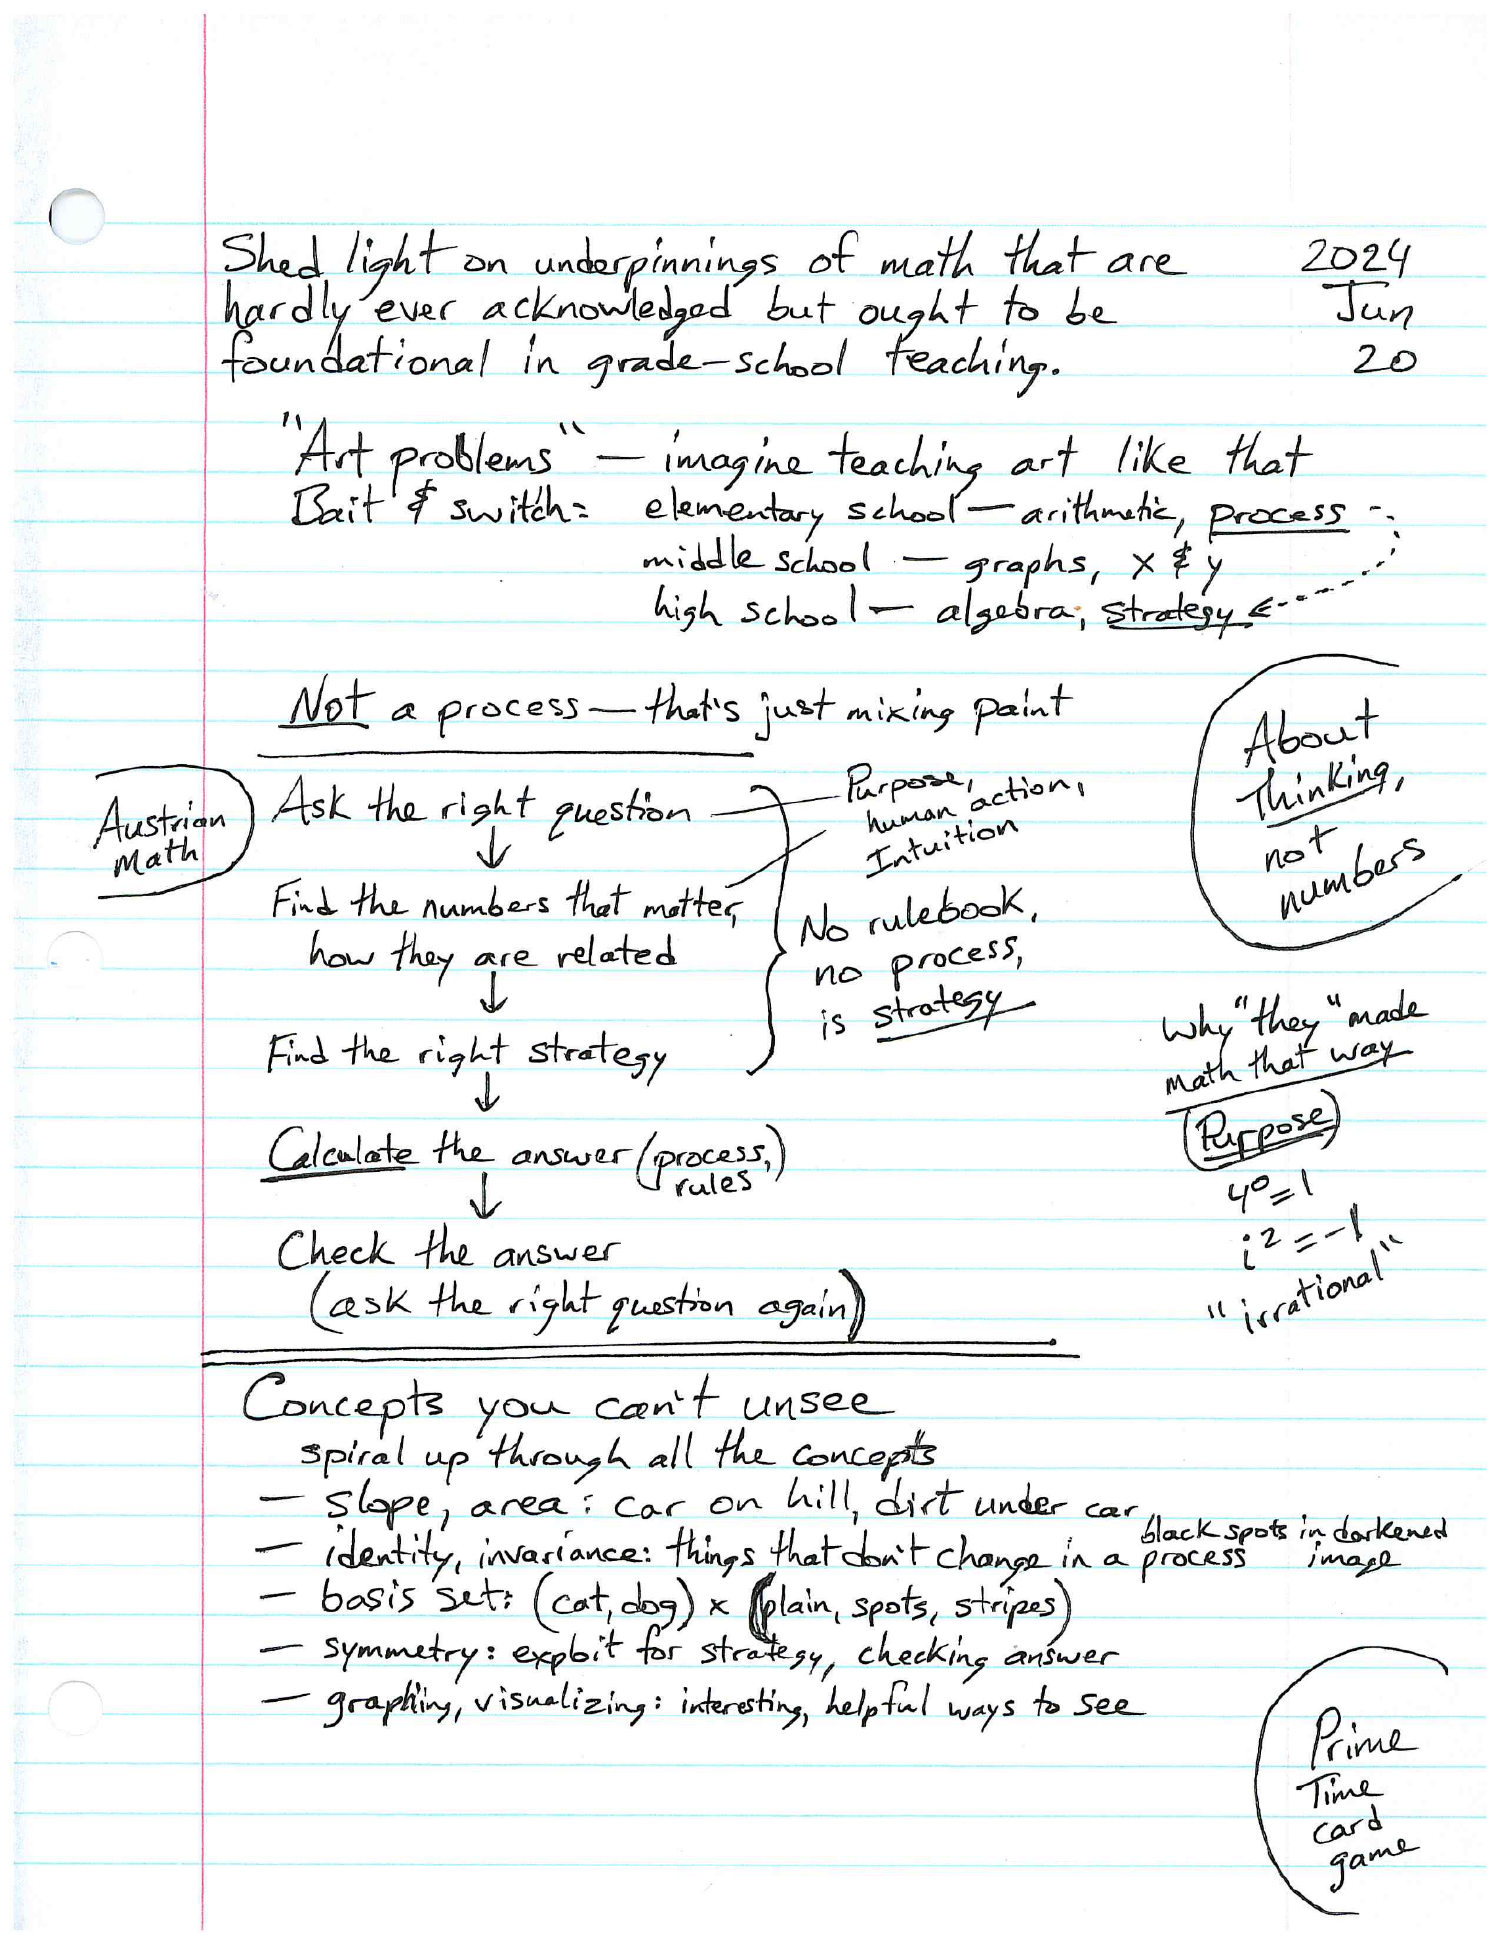 Shed light on underpinnings of math that are
hardly ever acknowledged but ought to be
foundational in grade-school teaching.
2024
Jun
20
"Art problems" — imagine teaching art like that
Bait & switch: elementary school — arithmetic, process
middle school — graphs, x & y
high school — algebra, strategy
Not a process — that's just mixing paint
About
Thinking,
not
numbers
Austrian
math
Ask the right question
↓
Find the numbers that matter,
how they are related
↓
Find the right strategy
↓
Calculate the answer (process,
rules)
↓
Check the answer
(ask the right question again)
Purpose,
human action,
Intuition
No rulebook,
no process,
is strategy
Why "they" made
math that way
Purpose
4⁰=1
i²=-1
"irrational"
Concepts you can't unsee
spiral up through all the concepts
— slope, area: car on hill, dirt under car
— identity, invariance: things that don't change in a process
black spots in darkened
image
— basis set: (cat, dog) x (plain, spots, stripes)
— symmetry: exploit for strategy, checking answer
— graphing, visualizing: interesting, helpful ways to see
Prime
Time
card
game